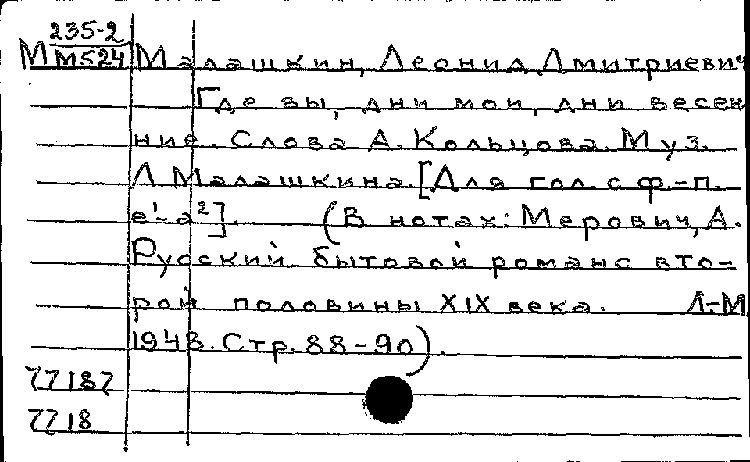 235-2
М М524 Малашкин, Леонид Дмитриевич
Где вы, дни мои, дни весен
ние. Слова А. Кольцова. Муз.
Л Малашкина. [Для гол. с ф.-п.
e¹-a²]. (В нотах: Мерович, А.
Русский бытовой романс вто-
рой половины XIX века. Л-М
1948. Стр. 88-90).
77187
7718